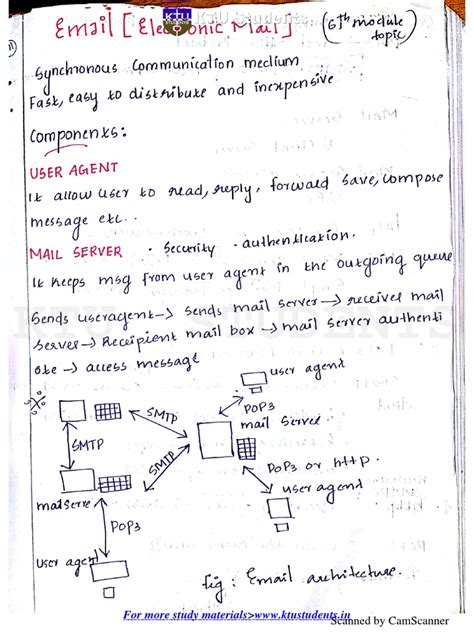 KTU Students
Email [Electronic Mail] (6th module topic)
Synchronous Communication medium
Fast, easy to distribute and inexpensive
Components:
USER AGENT
It allow user to read, reply, forward save, compose
message etc..
MAIL SERVER . Security . authentication.
It keeps msg from user agent in the outgoing queue
Sends useragent → Sends mail server → receives mail
Server → Receipient mail box → mail server authenti
cate → access message
KTU STUDENTS
user agent
SMTP
POP3
mail Server
SMTP
SMTP
POP3 or http.
user agent
mailserve
POP3
User agent
fig : Email architecture.
For more study materials>www.ktustudents.in
Scanned by CamScanner